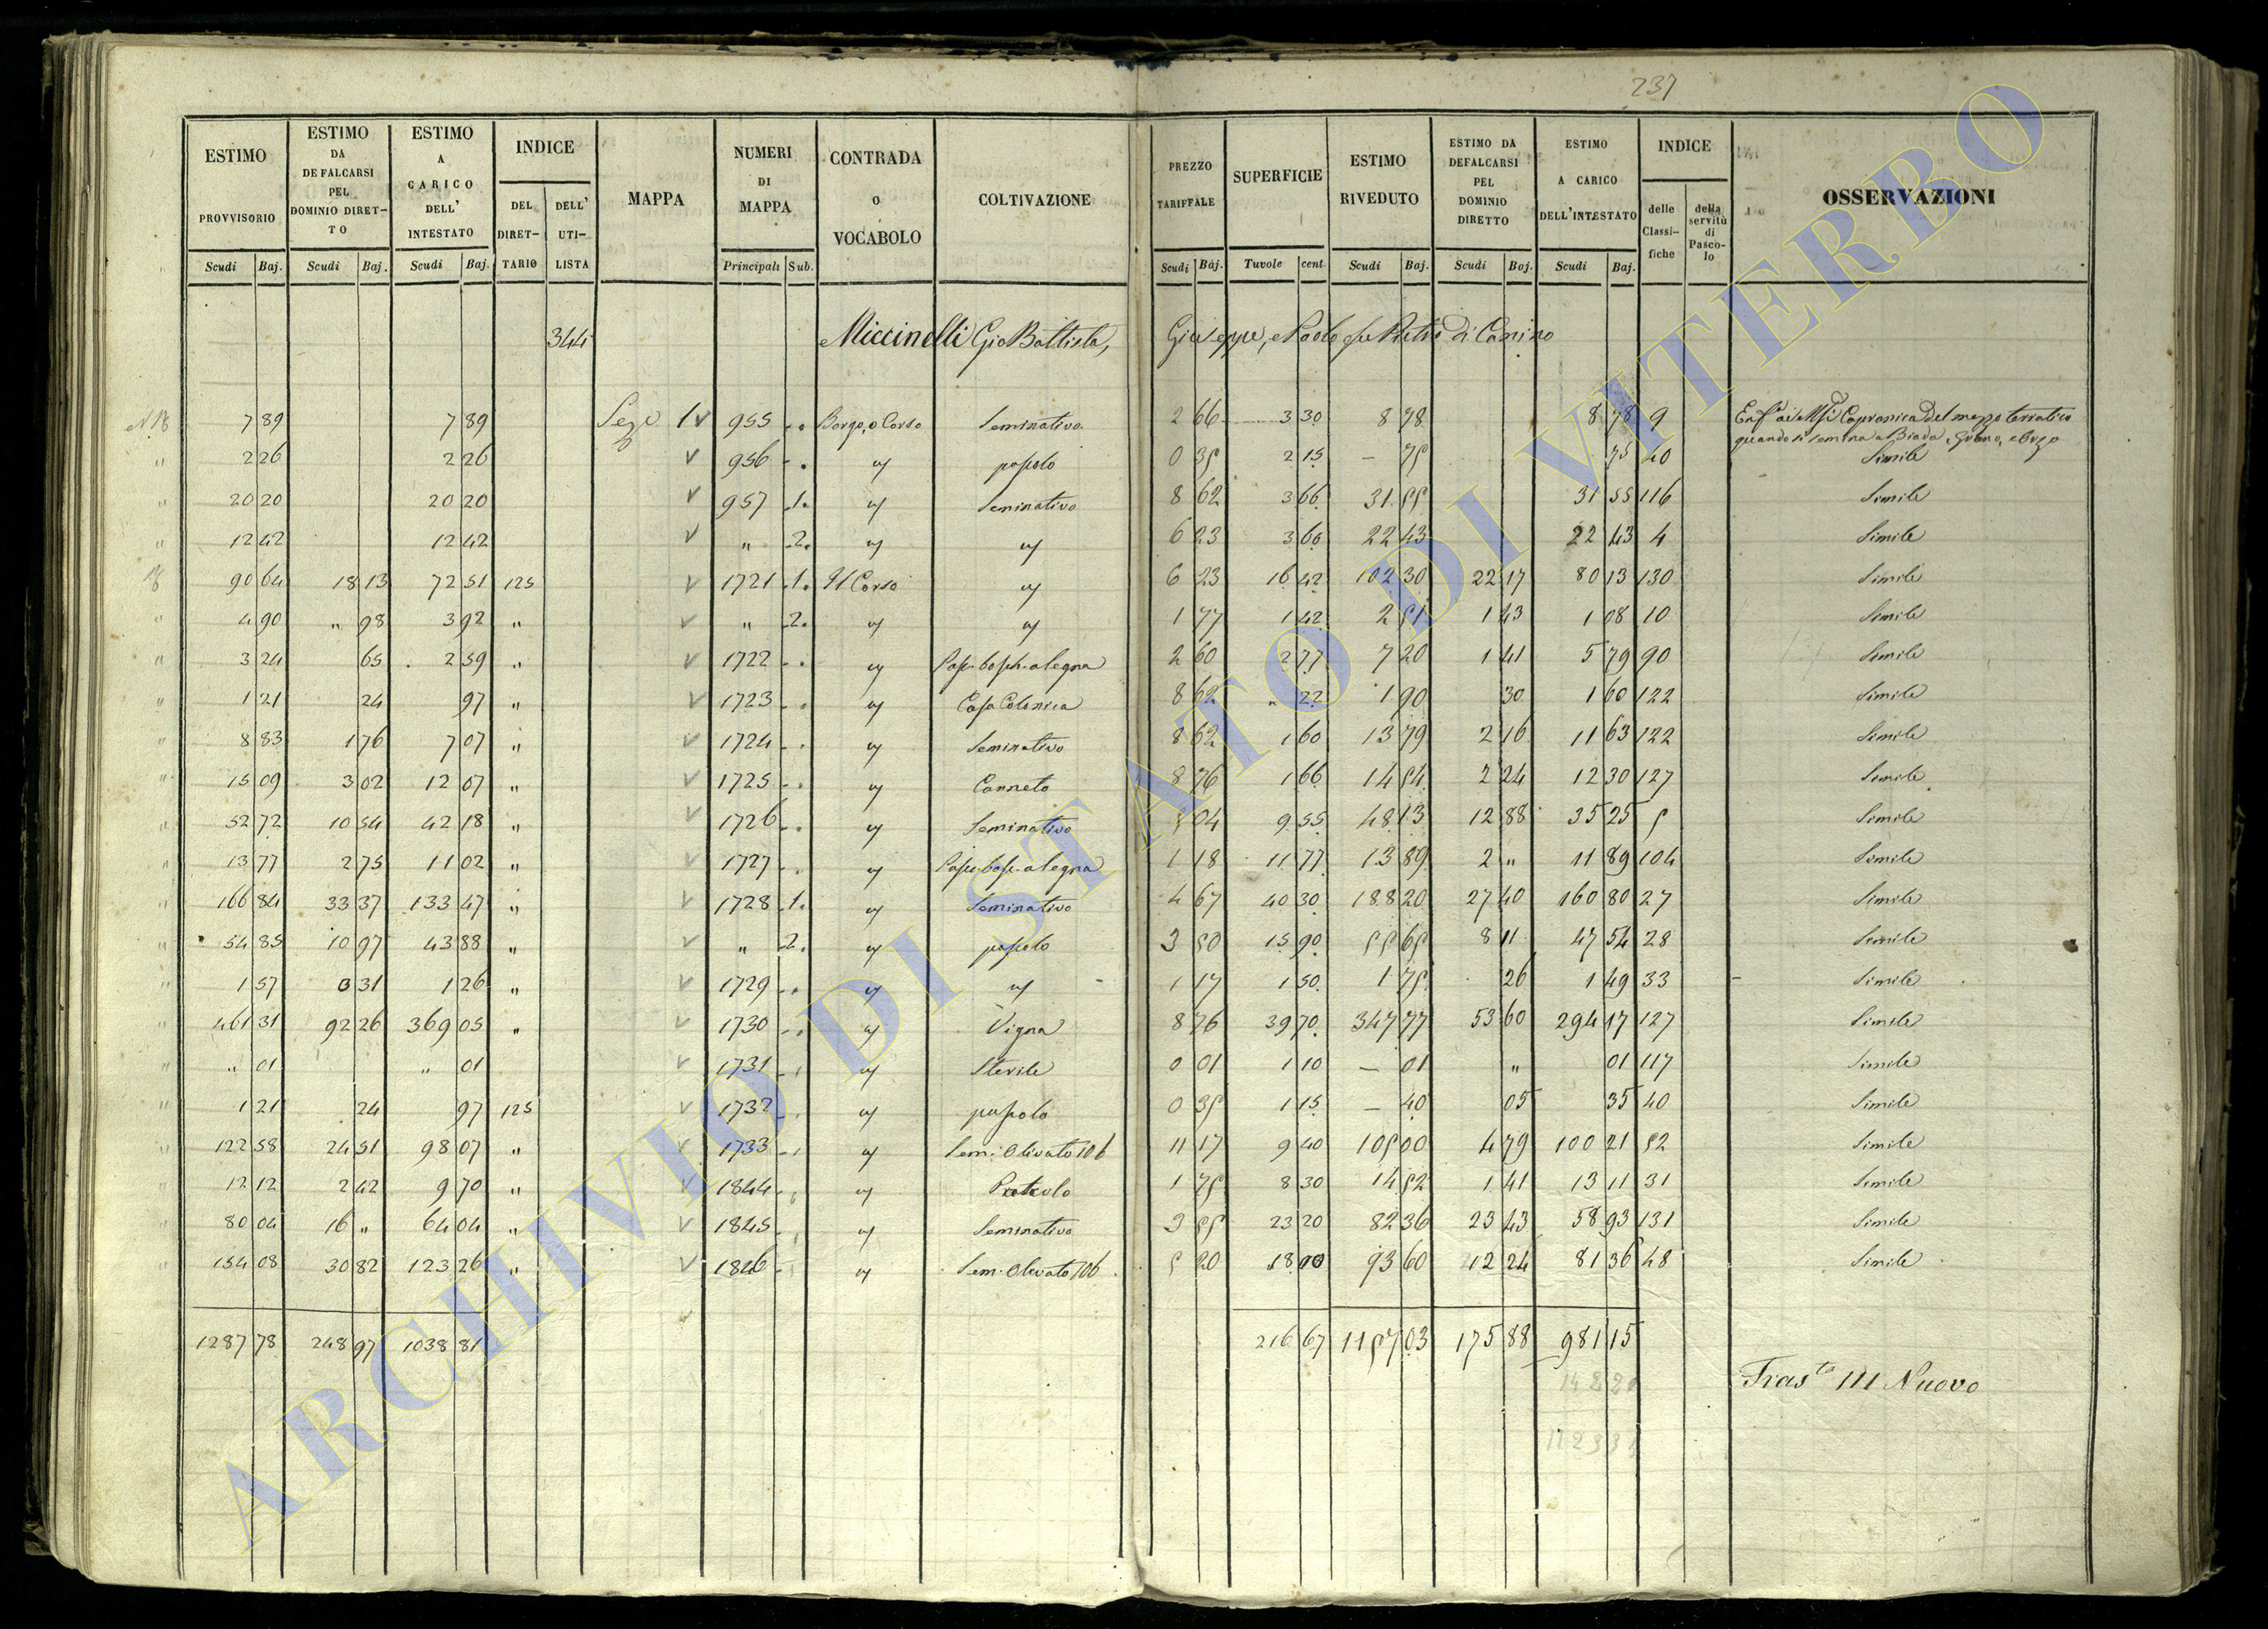 237
ESTIMO PROVVISORIO Scudi Baj. ESTIMO DA DEFALCARSI PEL DOMINIO DIRETTO Scudi Baj. ESTIMO A CARICO DELL' INTESTATO Scudi Baj. INDICE DEL DIRETTARIO DELL' UTILISTA MAPPA NUMERI DI MAPPA Principali Sub. CONTRADA O VOCABOLO COLTIVAZIONE PREZZO TARIFFALE Scudi Baj. SUPERFICIE Tuvole cent. ESTIMO RIVEDUTO Scudi Baj. ESTIMO DA DEFALCARSI PEL DOMINIO DIRETTO Scudi Baj. ESTIMO A CARICO DELL'INTESTATO Scudi Baj. INDICE delle Classifiche della servitù di Pascolo OSSERVAZIONI
344 Miccinelli Gio Battista, Giuseppe, e Paolo fu Pietro di Canino
N. 18 7 89 7 89 Sez. 1 v 955 Borgo, o Corso Seminativo 2 66 3 30 8 78 8 78 9 Capranica del mezzo terratico
quando si semina a Biada, Grano, e Orzo
" 2 26 2 26 v 956 " pascolo 0 35 2 15 — 75 75 40 Simile
" 20 20 20 20 v 957 1. " Seminativo 8 62 3 66 31 55 31 55 116 Simile
" 12 42 12 42 v " 2. " " 6 23 3 60 22 43 22 43 4 Simile
18 90 64 18 13 72 51 125 v 1721 1. Il Corso " 6 23 16 42 102 30 22 17 80 13 130 Simile
" 4 90 " 98 3 92 " v " 2. " " 1 77 1 42 2 51 1 43 1 08 10 Simile
" 3 24 65 2 59 " v 1722 " Pasc. bosch. a legna 2 60 2 77 7 20 1 41 5 79 90 Simile
" 1 21 24 97 " v 1723 " Casa Colonica 8 62 " 22 1 90 30 1 60 122 Simile
" 8 83 1 76 7 07 " v 1724 " Seminativo 8 62 1 60 13 79 2 16 11 63 122 Simile
" 15 09 3 02 12 07 " v 1725 " Canneto 8 76 1 66 14 54 2 24 12 30 127 Simile
" 52 72 10 54 42 18 " v 1726 " Seminativo 5 04 9 55 48 13 12 88 35 25 5 Simile
" 13 77 2 75 11 02 " v 1727 " Pasc. bosc. a legna 1 18 11 77 13 89 2 " 11 89 104 Simile
" 166 84 33 37 133 47 " v 1728 1. " Seminativo 4 67 40 30 188 20 27 40 160 80 27 Simile
" 54 85 10 97 43 88 " v " 2. " pascolo 3 50 15 90 55 65 8 11 47 54 28 Simile
" 1 57 0 31 1 26 " v 1729 " " 1 17 1 50 1 75 26 1 49 33 Simile
" 461 31 92 26 369 05 " v 1730 " Vigna 8 76 39 70 347 77 53 60 294 17 127 Simile
" " 01 " 01 v 1731 " Sterile 0 01 1 10 — 01 " 01 117 Simile
" 1 21 24 97 125 v 1732 " pascolo 0 35 1 15 — 40 05 35 40 Simile
" 122 58 24 51 98 07 " v 1733 " Sem. Olivato 106 11 17 9 40 105 00 4 79 100 21 52 Simile
" 12 12 2 42 9 70 " v 1844 " 1 75 8 30 14 52 1 41 13 11 31 Simile
" 80 04 16 " 64 04 " v 1845 " Seminativo 3 55 23 20 82 36 23 43 58 93 131 Simile
" 154 08 30 82 123 26 " v 1846 " Sem. Olivato 106 5 20 18 00 93 60 12 24 81 36 48 Simile
1287 78 248 97 1038 81 216 67 1157 03 175 88 981 15
Trasto 111 Nuovo
14 22
112 33
ARCHIVIO DI STATO DI VITERBO